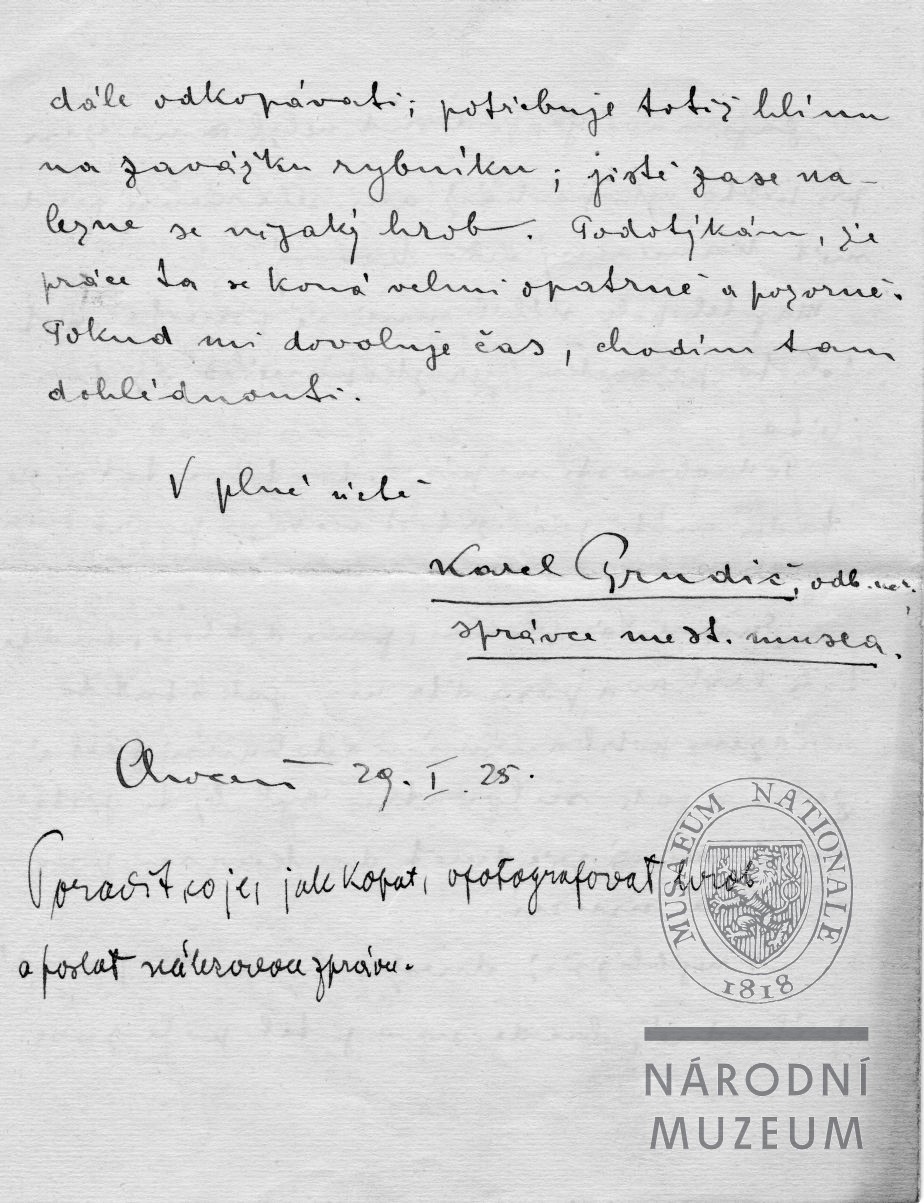 dále odkopávati; potřebuje totiž hlínu
na zavážku rybníku; jistě zase na-
lezne se nějaký hrob. Podotýkám, že
práce ta se koná velmi opatrně a pozorně.
Pokud mi dovoluje čas, chodím tam
dohlédnouti.
V plné úctě
Karel
správce měst. musea.
Choceň 29. I. 25.
Poradit, co je, jak kopat, ofotografovat hrob
a poslat nálezovou zprávu.
MUSAEUM NATIONALE
1818
NÁRODNÍ
MUZEUM